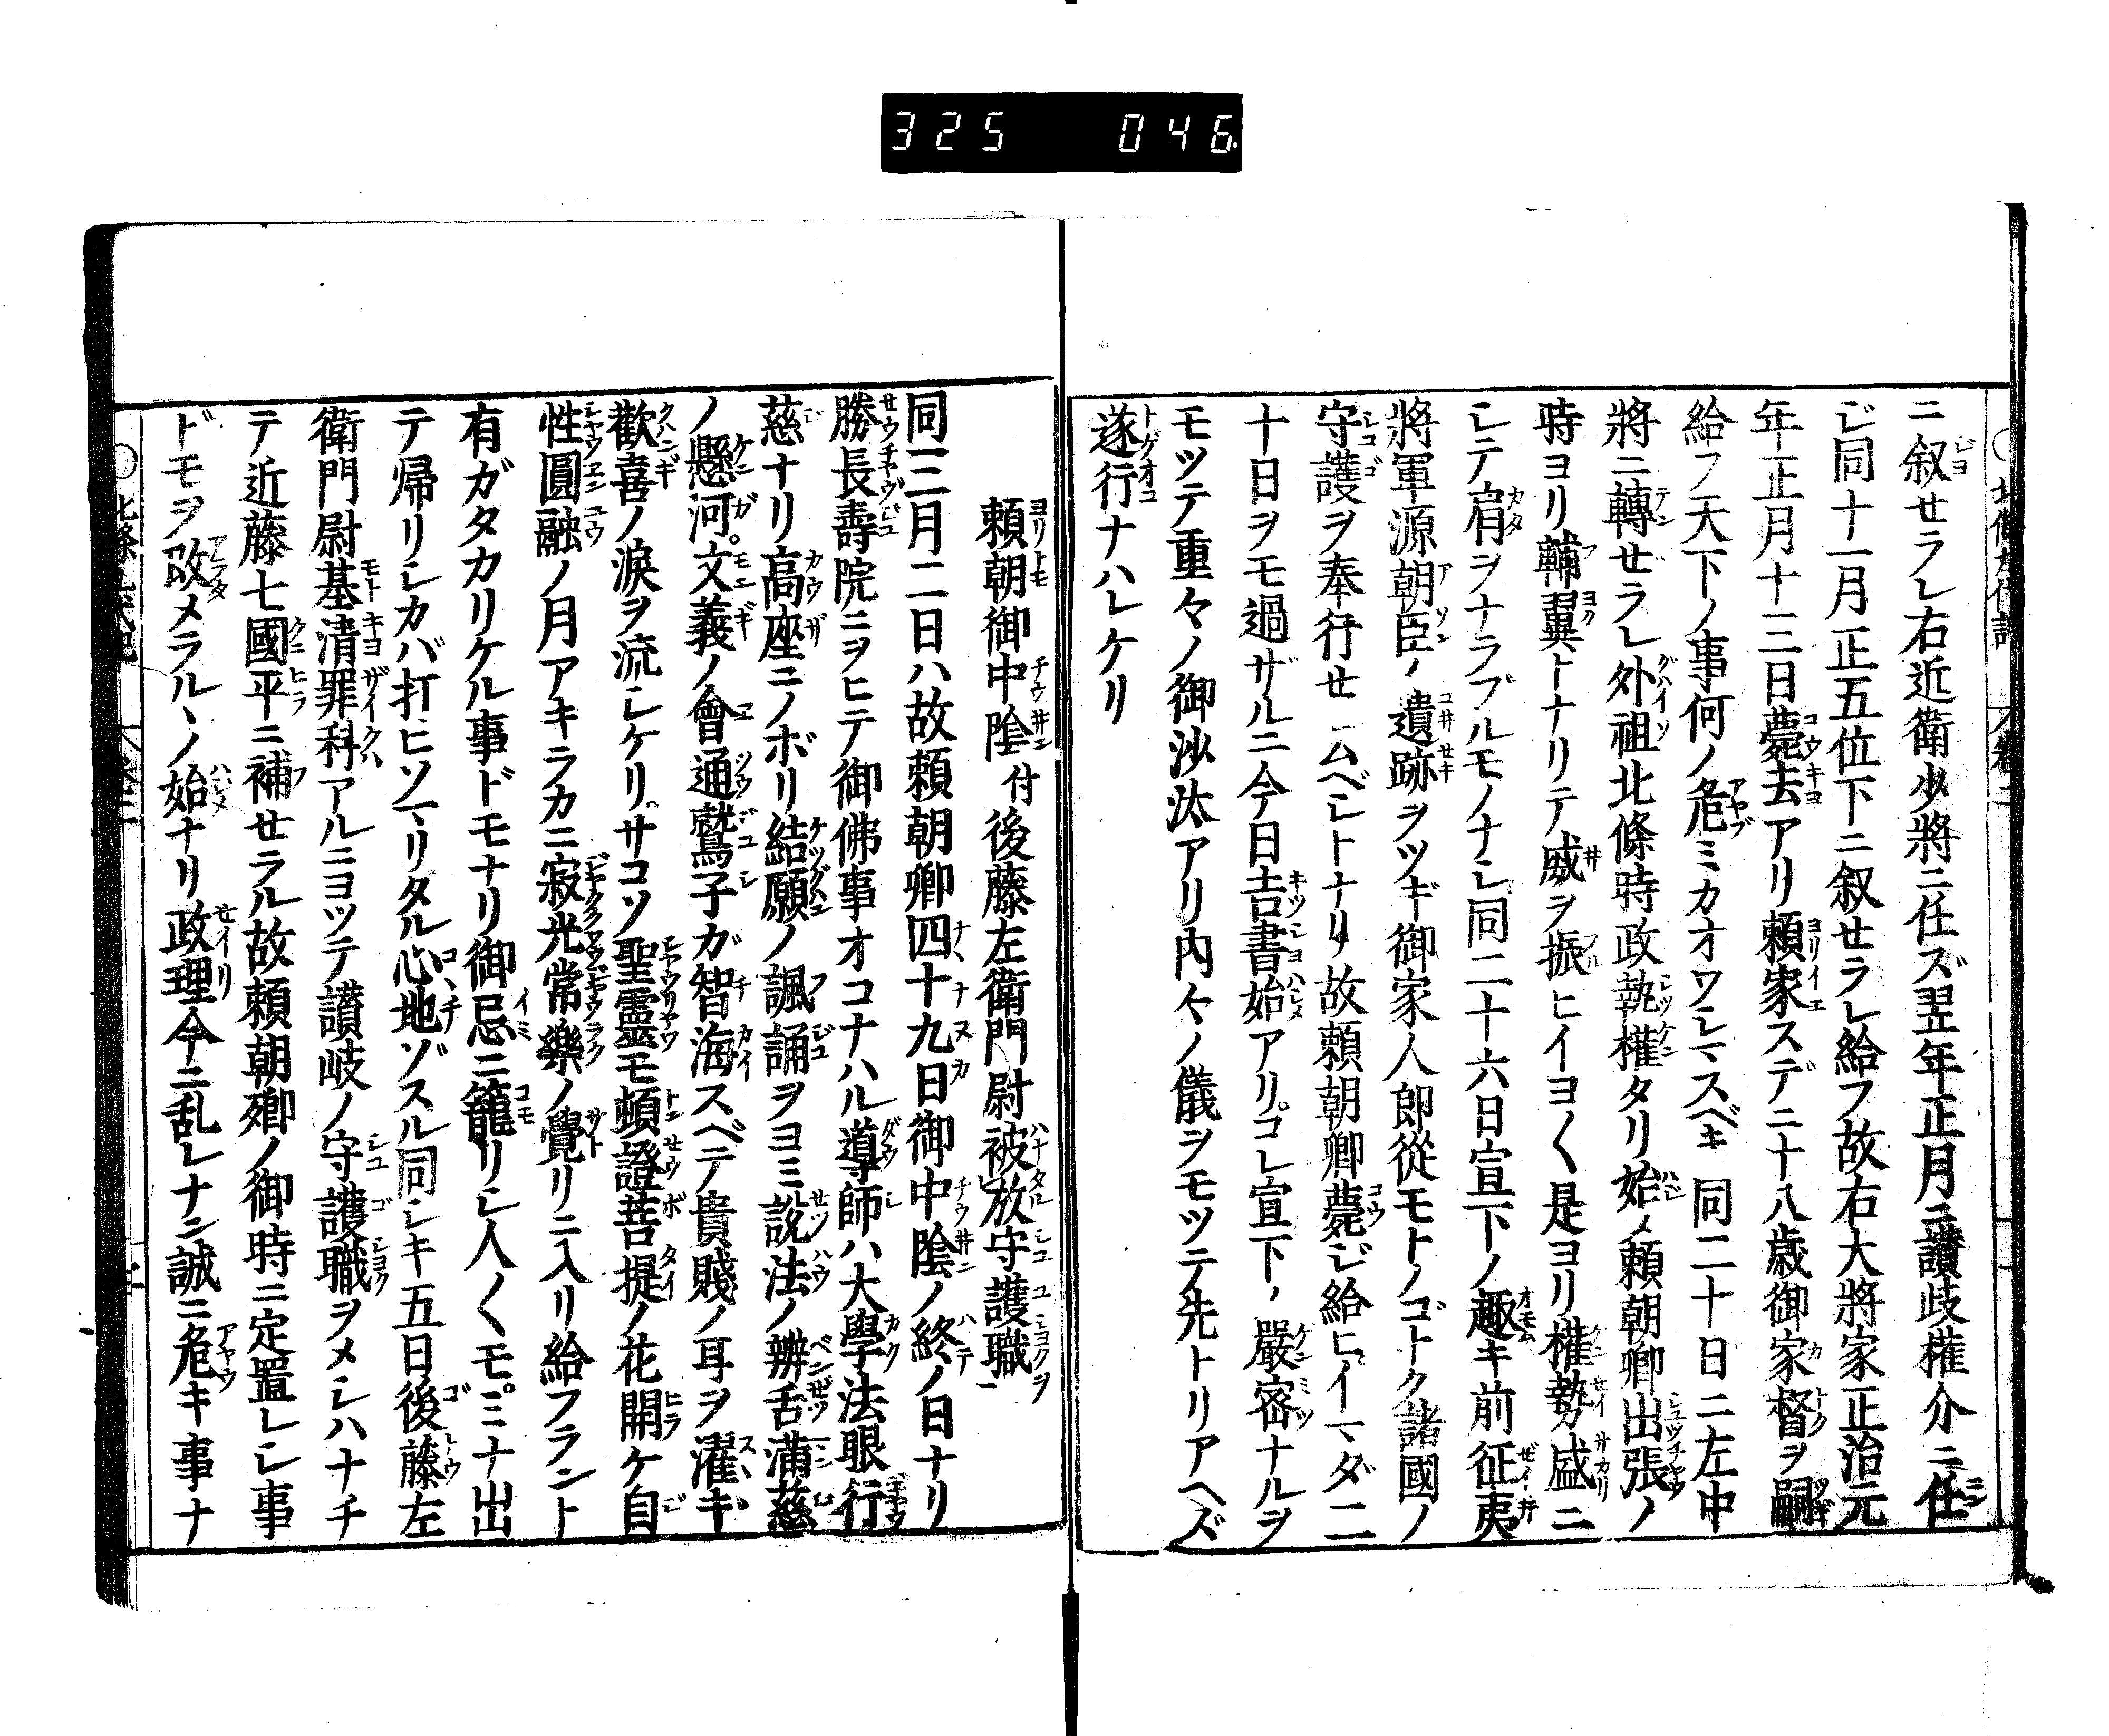 325 046
ニ叙セラレ右近衛少將ニ任ズ翌年正月ニ讃岐權介ニ任
ジ同十一月正五位下ニ叙セラレ給フ故右大將家正治元
年正月十三日薨去アリ頼家スデニ十八歳御家督ヲ嗣
給フ天下ノ事何ノ危ミカオワシマスベキ 同二十日ニ左中
將ニ轉ゼラレ外祖北條時政執權タリ始メ頼朝卿出張ノ
時ヨリ輔翼トナリテ威ヲ振ヒイヨ〱是ヨリ權勢盛ニ
シテ肩ヲナラブルモノナシ同二十六日宣下ノ趣キ前征夷
將軍源朝臣ノ遺跡ヲツギ御家人郎從モトノゴトク諸國ノ
守護ヲ奉行セシムベシトナリ故頼朝卿薨ジ給ヒイマダ二
十日ヲモ過ザルニ今日吉書始アリコレ宣下ノ嚴密ナルヲ
モツテ重々ノ御沙汰アリ内々ノ儀ヲモツテ先トリアヘズ
遂行ナハレケリ
頼朝御中陰付後藤左衛門尉被放守護職
同三月二日ハ故頼朝卿四十九日御中陰ノ終ノ日ナリ
勝長壽院ニヲヒテ御佛事オコナハル導師ハ大學法眼行
慈ナリ高座ニノボリ結願ノ諷誦ヲヨミ說法ノ辨舌滿慈
ノ懸河。文義ノ會通鶖子ガ智海スベテ貴賤ノ耳ヲ濯ギ
歡喜ノ淚ヲ流シケリ。サコソ聖靈モ頓證菩提ノ花開ケ自
性圓融ノ月アキラカニ寂光常樂ノ覺リニ入リ給フラント
有ガタカリケル事ドモナリ御忌ニ籠リシ人〱モミナ出
テ帰リシカバ打ヒソマリタル心地ゾスル同シキ五日後藤左
衛門尉基清罪科アルニヨツテ讃岐ノ守護職ヲメシハナチ
テ近藤七國平ニ補セラル故頼朝卿ノ御時ニ定置レシ事
ドモヲ改メラルヽノ始ナリ政理今ニ乱レナン誠ニ危キ事ナ